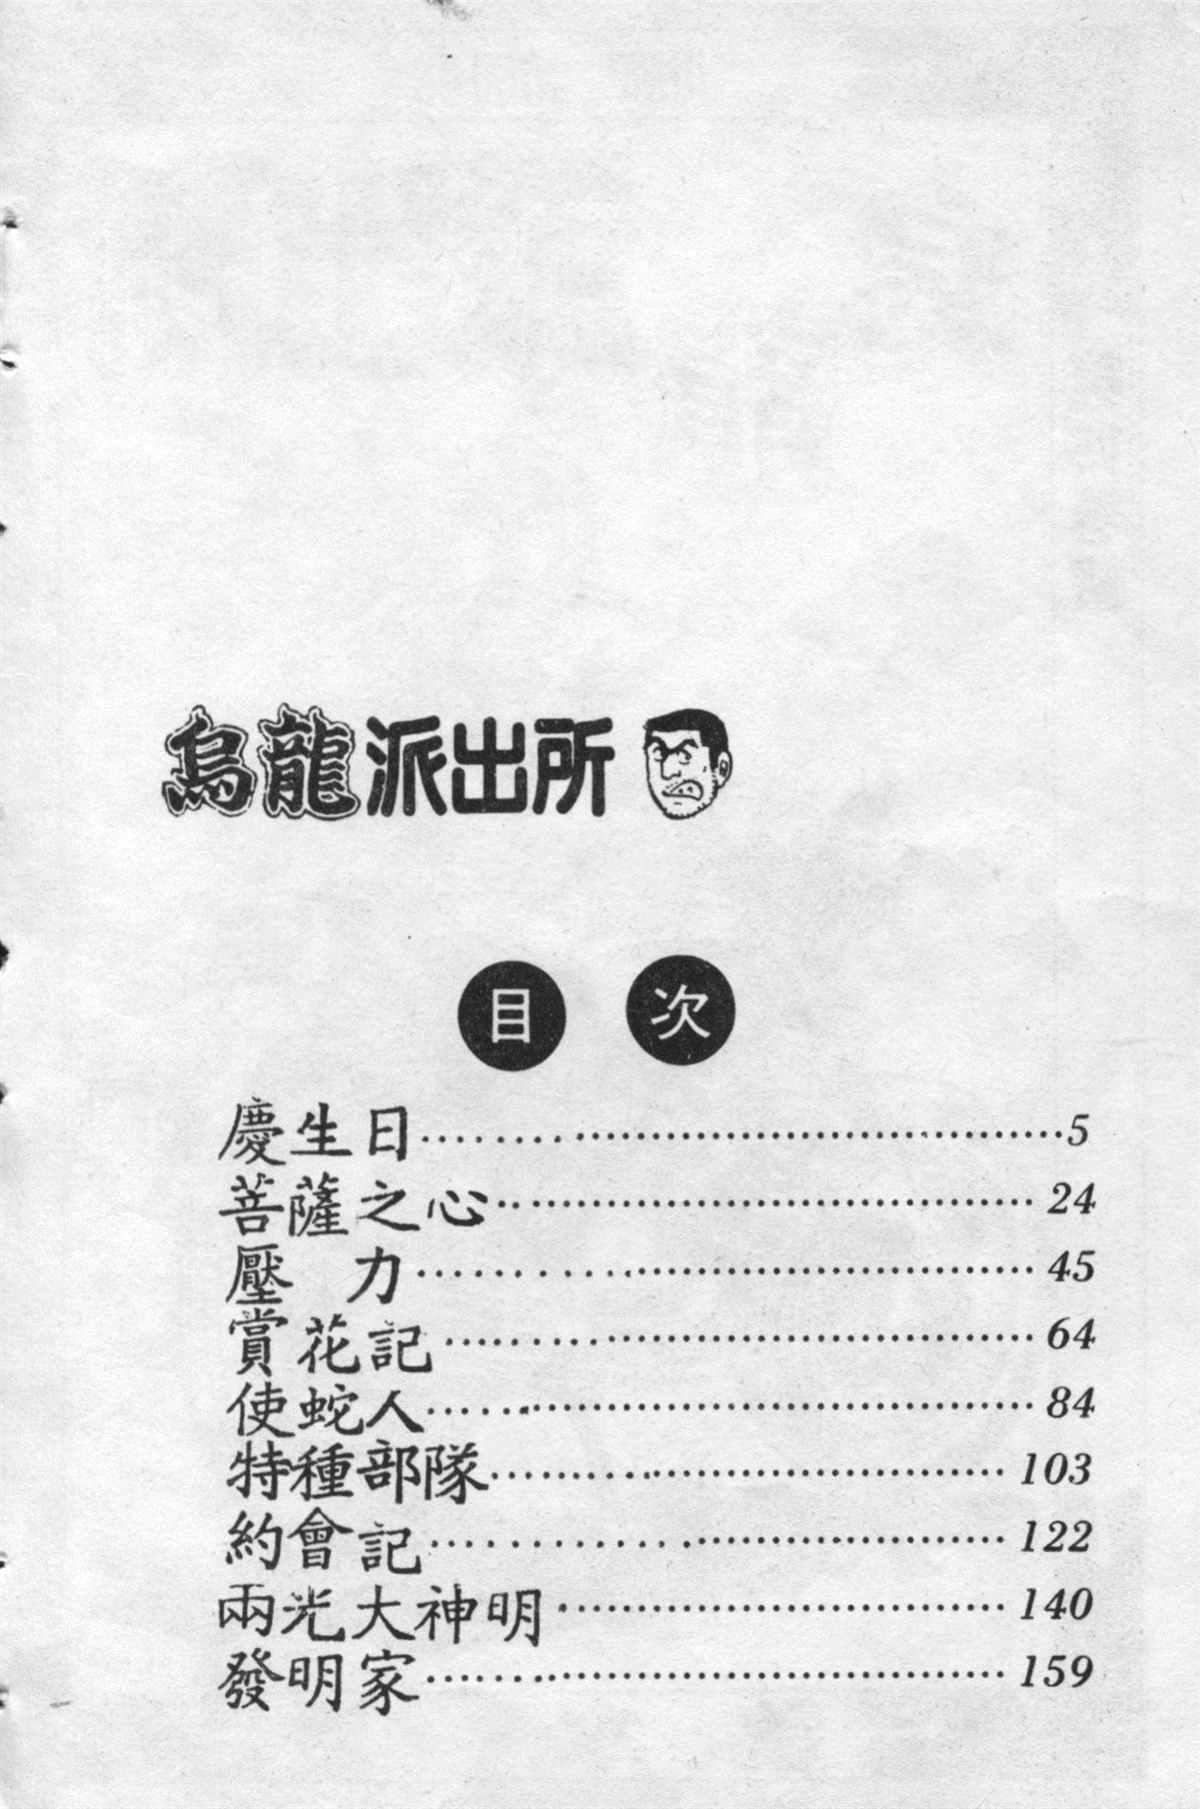 烏龍派出所
目次
慶生日……………………5
菩薩之心……………………24
壓　力……………………45
賞花記……………………64
使蛇人……………………84
特種部隊……………………103
約會記……………………122
兩光大神明……………………140
發明家……………………159